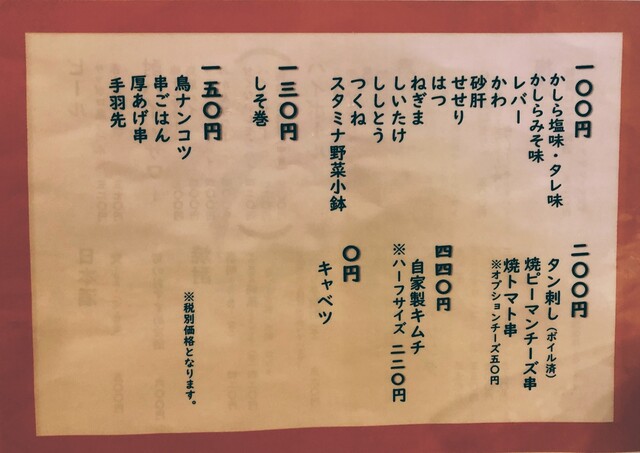 一〇〇円
かしら塩味・タレ味
かしらみそ味
レバー
かわ
砂肝
せせり
はつ
ねぎま
しいたけ
ししとう
つくね
スタミナ野菜小鉢
一三〇円
しそ巻
一五〇円
鳥ナンコツ
串ごはん
厚あげ串
手羽先
二〇〇円
タン刺し（ボイル済）
焼ピーマンチーズ串
焼トマト串
※オプションチーズ五〇円
四四〇円
自家製キムチ
※ハーフサイズ 二二〇円
〇円
キャベツ
※税別価格となります。